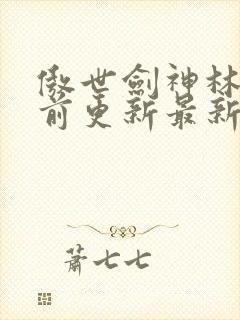 傲世劍神林
前更新最新
蕭七七